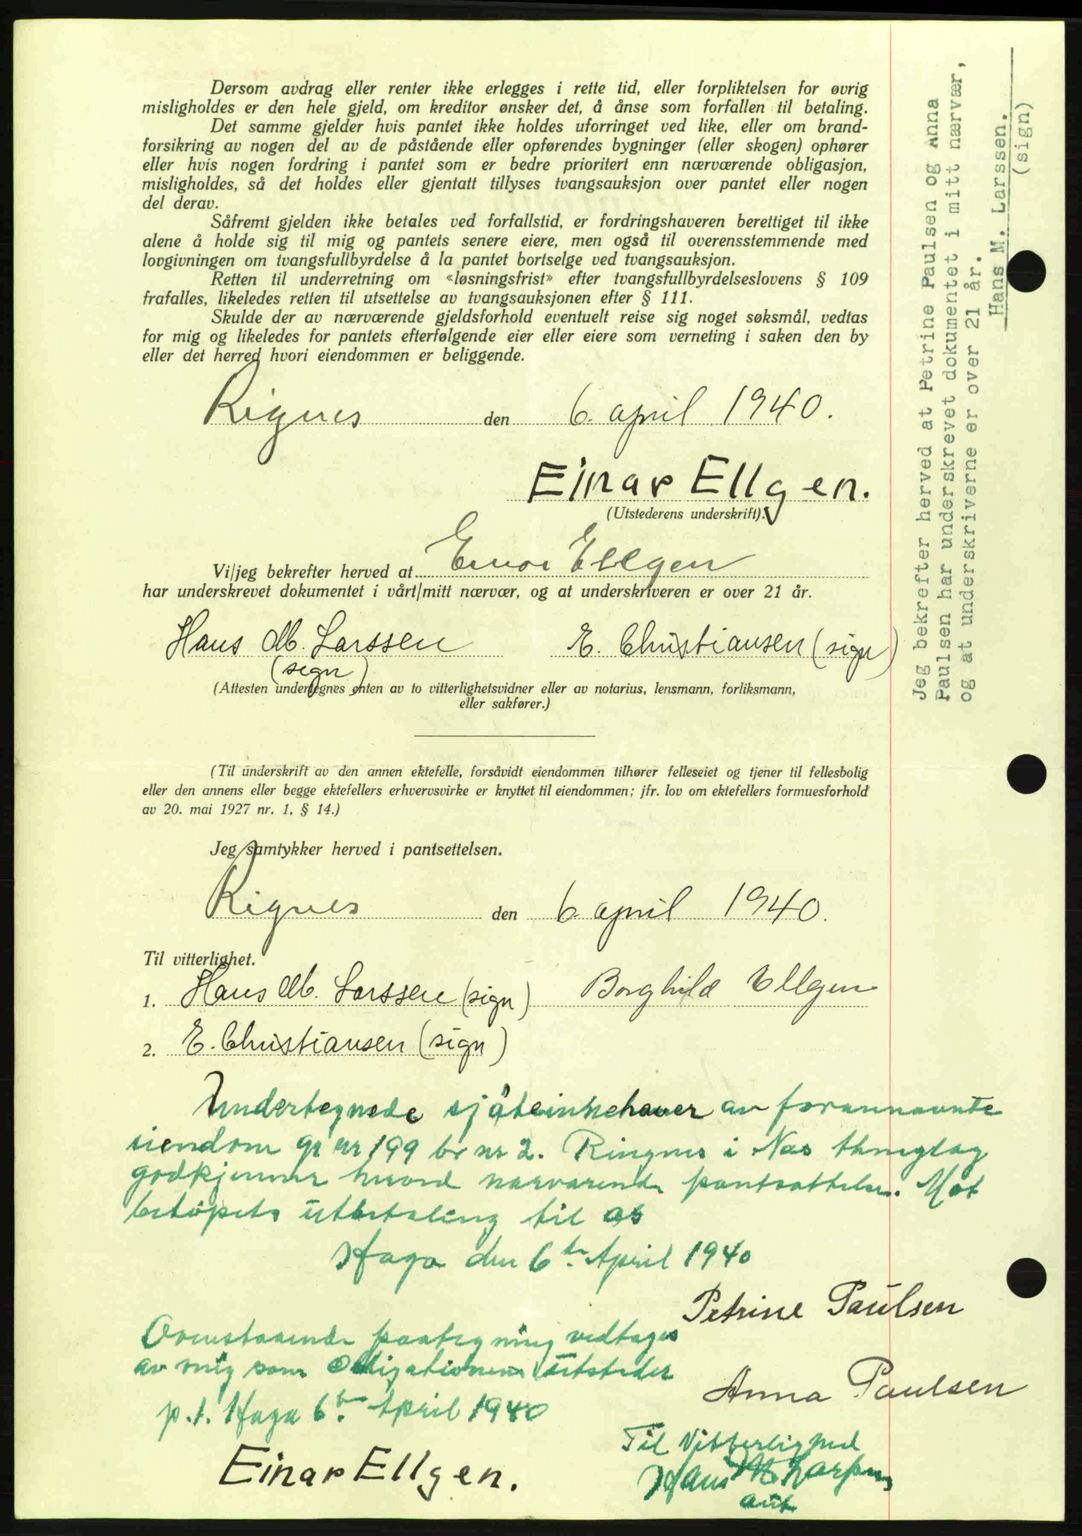 Dersom avdrag eller renter ikke erlegges i rette tid, eller forpliktelsen for øvrig
misligholdes er den hele gjeld, om kreditor ønsker det, å ånse som forfallen til betaling.
Det samme gjelder hvis pantet ikke holdes uforringet ved like, eller om brand-
forsikring av nogen del av de påstående eller opførendes bygninger (eller skogen) ophører
eller hvis nogen fordring i pantet som er bedre prioritert enn nærværende obligasjon,
misligholdes, så det holdes eller gjentatt tillyses tvangsauksjon over pantet eller nogen
del derav.
Såfremt gjelden ikke betales ved forfallstid, er fordringshaveren berettiget til ikke
alene å holde sig til mig og pantets senere eiere, men også til overensstemmende med
lovgivningen om tvangsfullbyrdelse å la pantet bortselge ved tvangsauksjon.
Retten til underretning om «løsningsfrist» efter tvangsfullbyrdelseslovens § 109
frafalles, likeledes retten til utsettelse av tvangsauksjonen efter § 111.
Skulde der av nærværende gjeldsforhold eventuelt reise sig noget søksmål, vedtas
for mig og likeledes for pantets efterfølgende eier eller eiere som verneting i saken den by
eller det herred hvori eiendommen er beliggende.
Rignes den 6. april 1940.
Einar Ellgen.
(Utstederens underskrift).
Vi/jeg bekrefter herved at Einar Ellgen
har underskrevet dokumentet i vårt/mitt nærvær, og at underskriveren er over 21 år.
Hans M. Larssen E. Christiansen (sign)
(sign)
(Attesten undertegnes enten av to vitterlighetsvidner eller av notarius, lensmann, forliksmann,
eller sakfører.)
(Til underskrift av den annen ektefelle, forsåvidt eiendommen tilhører felleseiet og tjener til fellesbolig
eller den annens eller begge ektefellers erhvervsvirke er knyttet til eiendommen; jfr. lov om ektefellers formuesforhold
av 20. mai 1927 nr. 1, § 14.)
Jeg samtykker herved i pantsettelsen.
Rignes den 6. april 1940.
Til vitterlighet.
1. Hans M. Larssen (sign) Borghild Ellgen
2. E. Christiansen (sign)
Undertegnede av forannævnte
eiendom gr nr 199 br nr 2. Ringnes i Nes
godkjenner herved nærværende pantsættelse. Mot
beløpets utbetaling til os
Haga den 6te April 1940
Petrine Paulsen
Ovenstaaende paategning vedtages
av mig som Obligationens utsteder
Anna Paulsen
p.t. Haga 6te April 1940
Til Vitterlighed
Einar Ellgen.
Hans M Larssen
Jeg bekrefter herved at Petrine Paulsen og Anna
Paulsen har underskrevet dokumentet i mitt nærvær,
og at underskriverne er over 21 år.
Hans M. Larssen.
(sign)